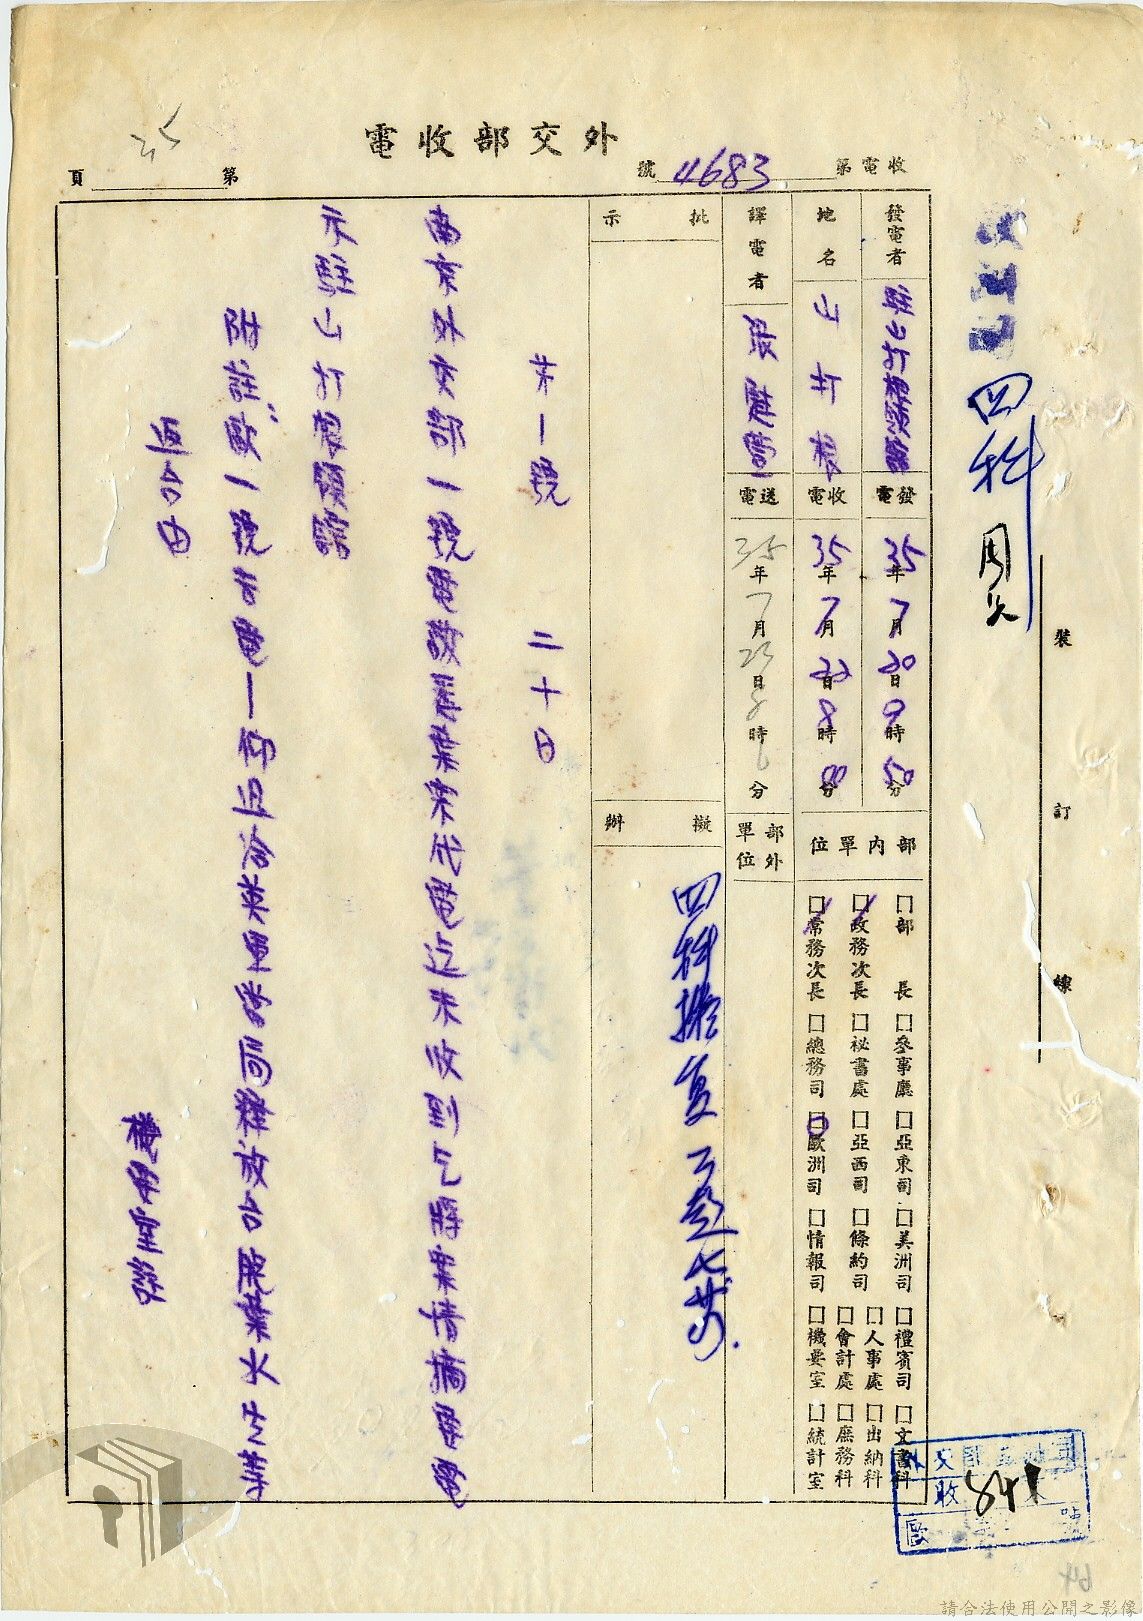 外交部收電
收電第4683號
第 35 頁
四科
裝
訂
線
發電者 駐山打根領館
地名 山打根
譯電者
發電 35年7月20日9時50分
收電 35年7月22日8時00分
送電 35年7月23日8時6分
部內單位
部外單位
□部長 □參事廳 □亞東司 □美洲司 □禮賓司 □文書科
□政務次長 □祕書處 □亞西司 □條約司 □人事處 □出納科
□會計處 □庶務科
□常務次長 □總務司 □歐洲司 □情報司 □機要室 □統計室
批示
擬辦
四科擬复
第一號 二十日
南京外交部一號電敬悉葉案代電迄未收到乞將案情摘要電
示駐山打根領館
附註：歐一號去電—仰迅洽英軍當局釋放台庶葉水生等
返台由
機要室註
收 841
歐
號
64
請合法使用公開之影像